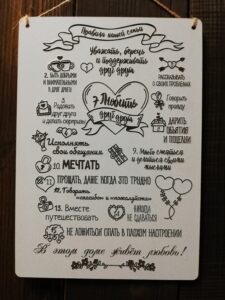 Правила нашей семьи
Уважать, беречь
и поддерживать
друг друга
2. БЫТЬ ДОБРЫМИ
И ВНИМАТЕЛЬНЫМИ
ДРУГ К ДРУГУ
РАССКАЗЫВАТЬ
О СВОИХ ПРОБЛЕМАХ
Радовать
друг друга
и делать сюрпризы
7 Любить
друг друга
Говорить
правду
ДАРИТЬ
ОБЪЯТИЯ
И ПОЦЕЛУИ
Исполнять
свои обещания
9. Много смеяться
и делиться своими
мыслями
10 МЕЧТАТЬ
11 ПРОЩАТЬ, ДАЖЕ КОГДА ЭТО ТРУДНО
12. Говорить
«спасибо» и «пожалуйста»
13. Вместе
путешествовать
14 НИКОГДА
НЕ СДАВАТЬСЯ
15 НЕ ЛОЖИТЬСЯ СПАТЬ В ПЛОХОМ НАСТРОЕНИИ
В этом доме живёт любовь!